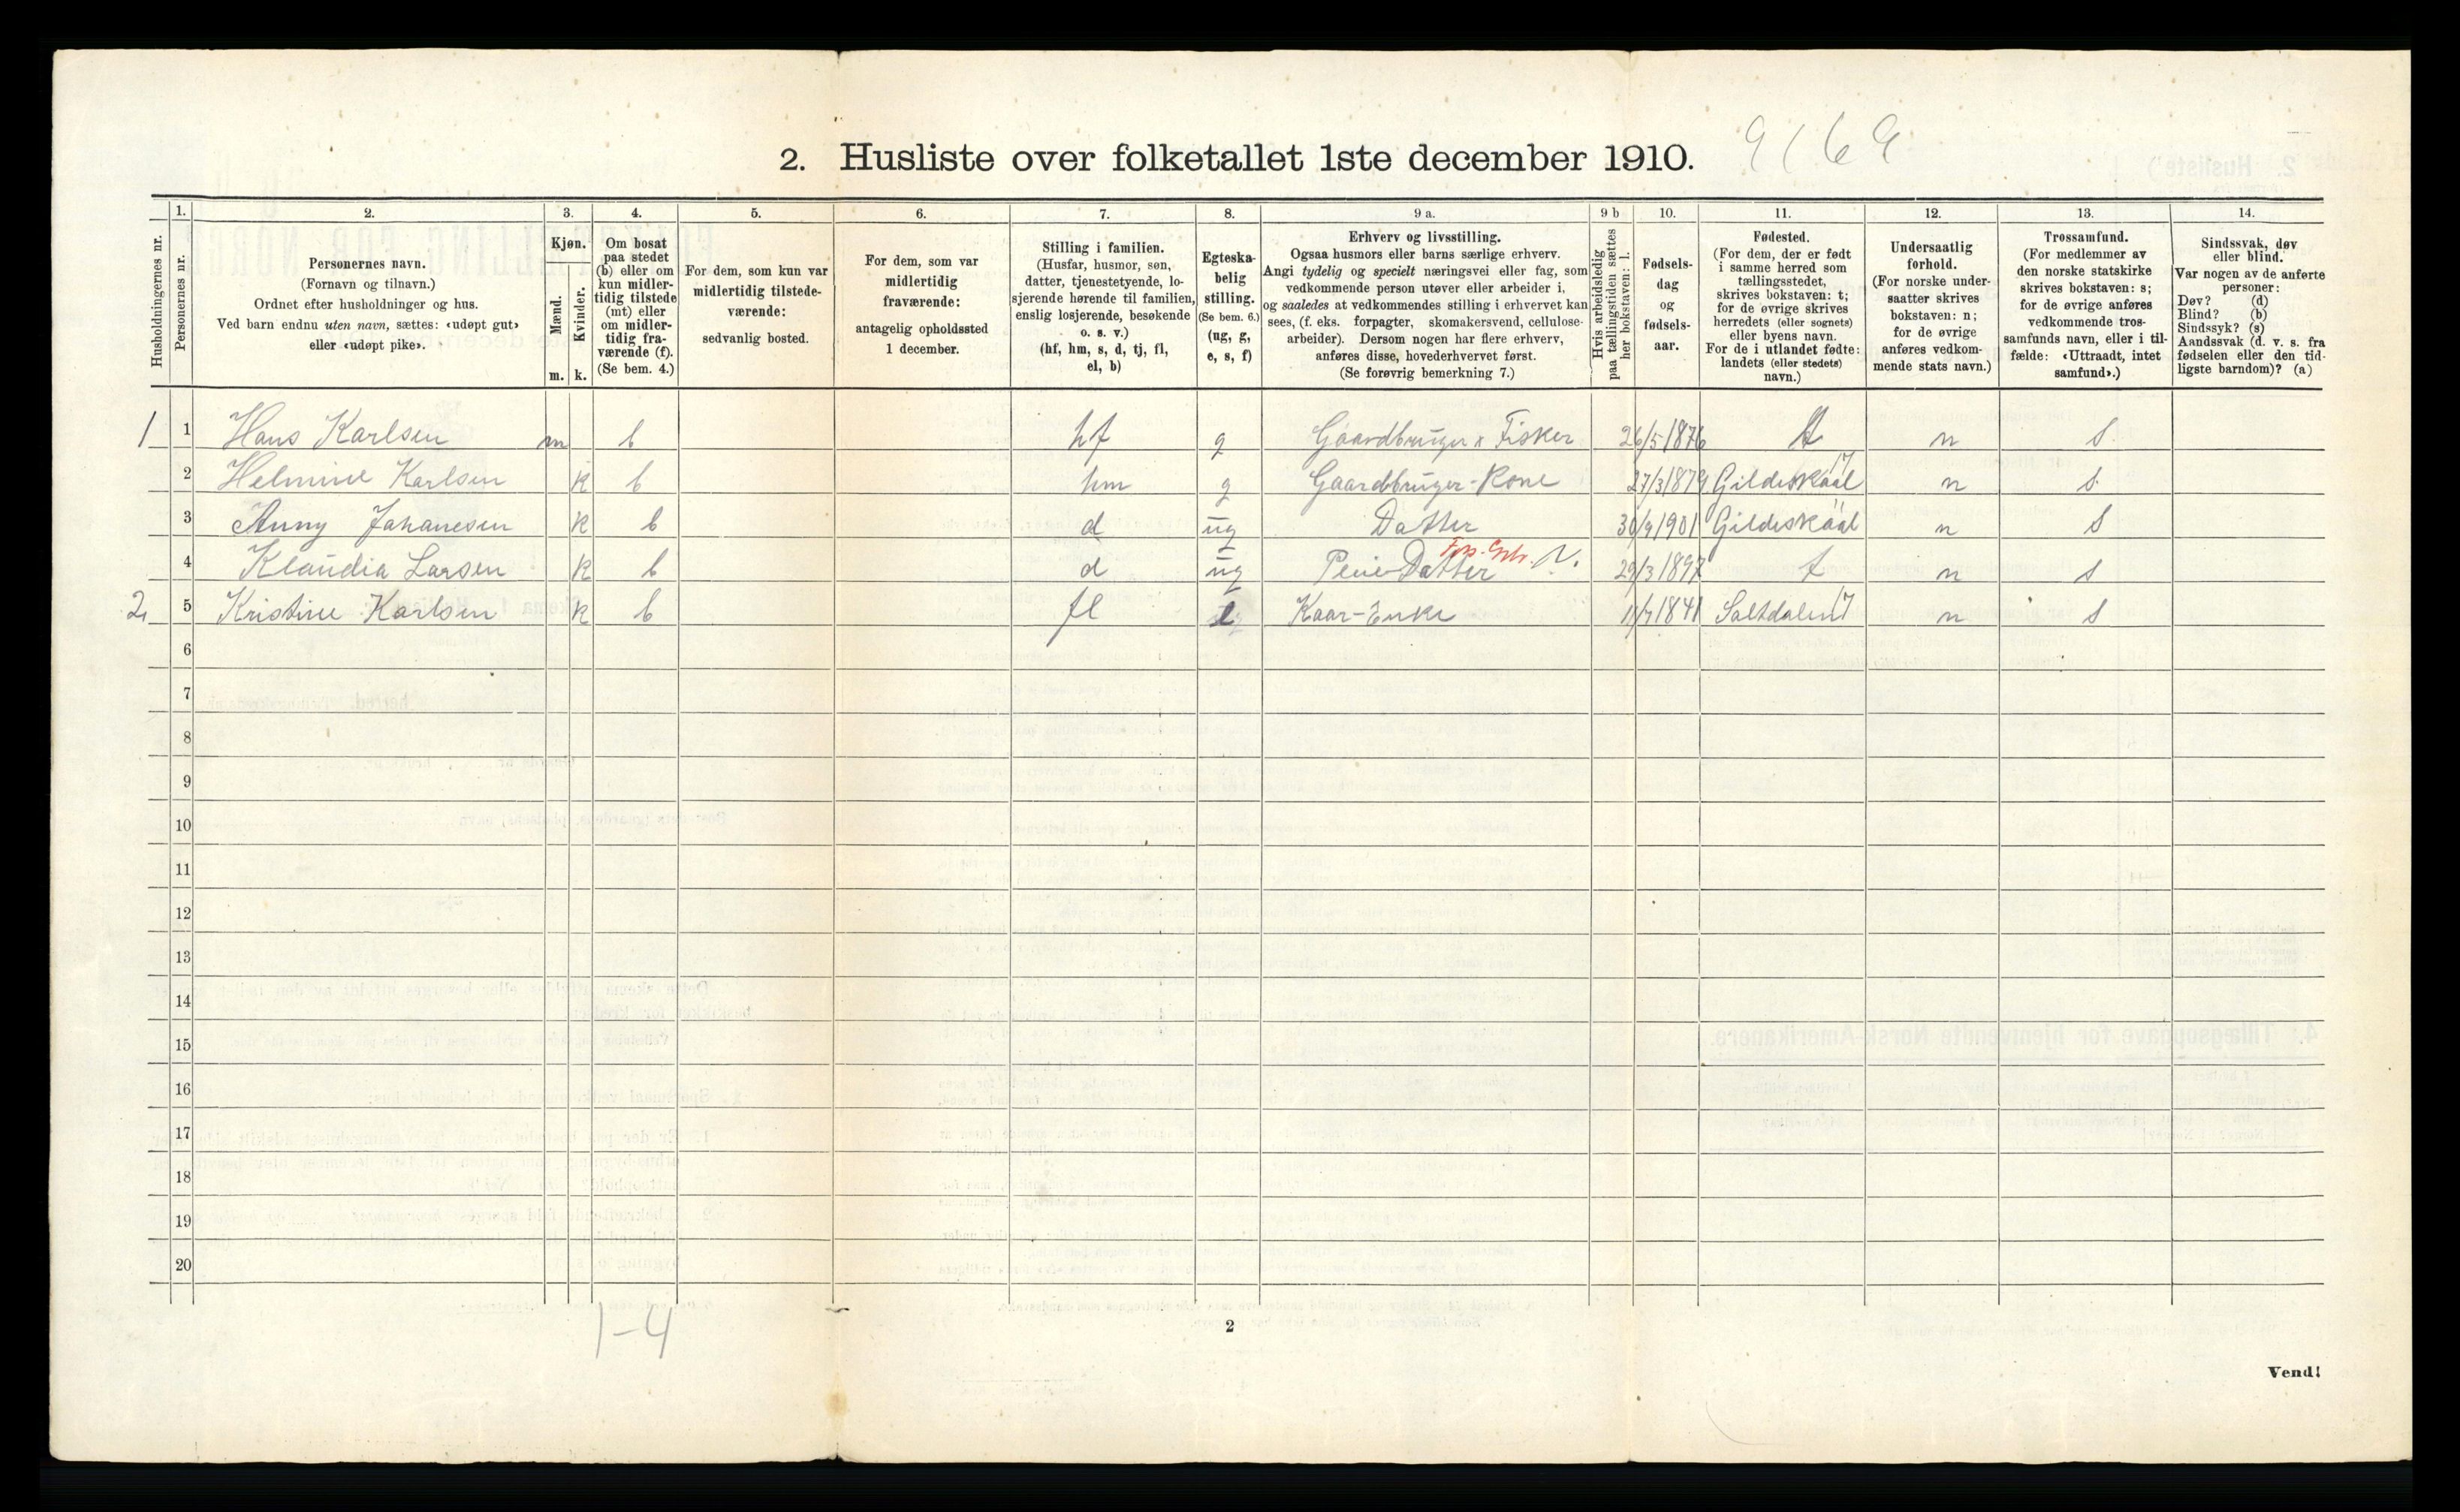 2. Husliste over folketallet 1ste december 1910.
9169
Husholdningernes nr.
1.
Personernes nr.
2.
Personernes navn.
(Fornavn og tilnavn.)
Ordnet efter husholdninger og hus.
Ved barn endnu uten navn, sættes: «udøpt gut»
eller «udøpt pike».
3.
Kjøn.
Mænd.
Kvinder.
m. k.
4.
Om bosat
paa stedet
(b) eller om
kun midler-
tidig tilstede
(mt) eller
om midler-
tidig fra-
værende (f).
(Se bem. 4.)
5.
For dem, som kun var
midlertidig tilstede-
værende:
sedvanlig bosted.
6.
For dem, som var
midlertidig
fraværende:
antagelig opholdssted
1 december.
7.
Stilling i familien.
(Husfar, husmor, søn,
datter, tjenestetyende, lo-
sjerende hørende til familien,
enslig losjerende, besøkende
o. s. v.)
(hf, hm, s, d, tj, fl,
el, b)
8.
Egteska-
belig
stilling.
(Se bem. 6.)
(ug, g,
e, s, f)
9 a.
Erhverv og livsstilling.
Ogsaa husmors eller barns særlige erhverv.
Angi tydelig og specielt næringsvei eller fag, som
vedkommende person utøver eller arbeider i,
og saaledes at vedkommendes stilling i erhvervet kan
sees, (f. eks. forpagter, skomakersvend, cellulose-
arbeider). Dersom nogen har flere erhverv,
anføres disse, hovederhvervet først.
(Se forøvrig bemerkning 7.)
9 b
Hvis arbeidsledig
paa tællingstiden sættes
her bokstaven: l.
10.
Fødsels-
dag
og
fødsels-
aar.
11.
Fødested.
(For dem, der er født
i samme herred som
tællingsstedet,
skrives bokstaven: t;
for de øvrige skrives
herredets (eller sognets)
eller byens navn.
For de i utlandet fødte:
landets (eller stedets)
navn.)
12.
Undersaatlig
forhold.
(For norske under-
saatter skrives
bokstaven: n;
for de øvrige
anføres vedkom-
mende stats navn.)
13.
Trossamfund.
(For medlemmer av
den norske statskirke
skrives bokstaven: s;
for de øvrige anføres
vedkommende tros-
samfunds navn, eller i til-
fælde: «Uttraadt, intet
samfund».)
14.
Sindssvak, døv
eller blind.
Var nogen av de anførte
personer:
Døv? (d)
Blind? (b)
Sindssyk? (s)
Aandssvak (d. v. s. fra
fødselen eller den tid-
ligste barndom)? (a)
1 1 Hans Karlsen m b hf g Gaardbruger x Fisker 26/5 1876 t n s
2 Helmine Karlsen k b hm g Gaardbruger-Kone 27/3 1879 Gildeskaal 17 n s
3 Anny Johanesen k b d ug Datter 30/9 1901 Gildeskaal " n s
4 Klaudia Larsen k b d ug Datter 29/3 1897 t n s
2 5 Kristine Karlsen k b fl e Kaar-Enke 11/7 1841 Saltdalen 17 n s
6
7
8
9
10
11
12
13
14
15
16
17
18
19
20
1-4
2
Vend!